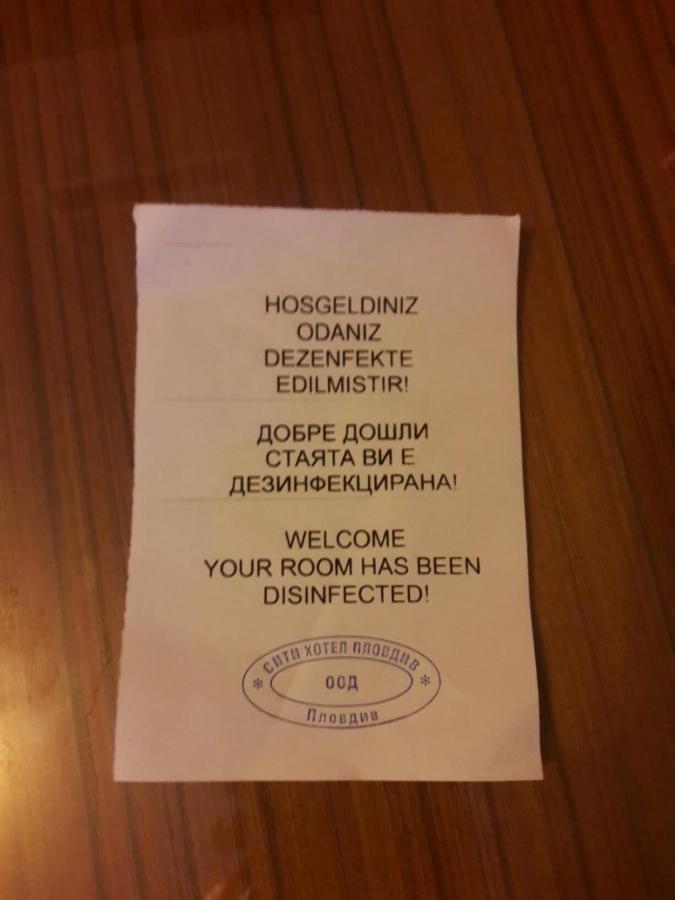 HOSGELDINIZ
ODANIZ
DEZENFEKTE
EDILMISTIR!
ДОБРЕ ДОШЛИ
СТАЯТА ВИ Е
ДЕЗИНФЕКЦИРАНА!
WELCOME
YOUR ROOM HAS BEEN
DISINFECTED!
* СИТИ ХОТЕЛ ПЛОВДИВ *
ООД
Пловдив